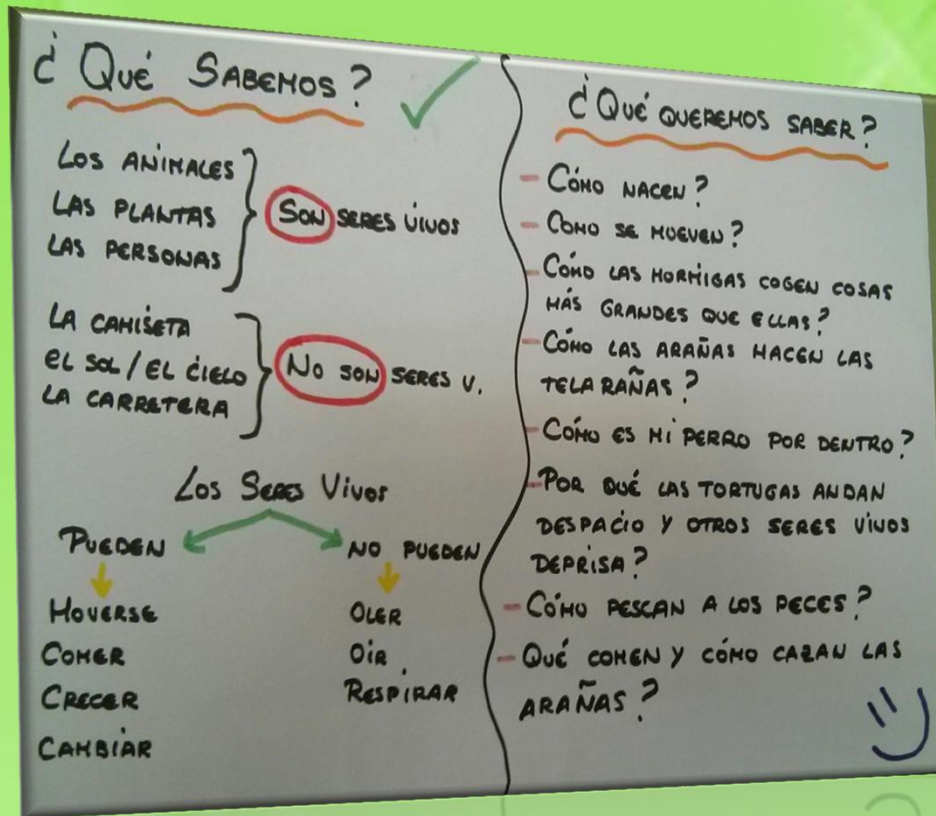 ¿Qué SABEMOS?
LOS ANIMALES
LAS PLANTAS
LAS PERSONAS
SON SERES VIVOS
LA CAMISETA
EL SOL / EL CIELO
LA CARRETERA
NO SON SERES V.
Los Seres Vivos
PUEDEN
MOVERSE
COMER
CRECER
CAMBIAR
NO PUEDEN
OLER
OÍR
RESPIRAR
¿Qué QUEREMOS SABER?
- CÓMO NACEN?
- COMO SE MUEVEN?
- CÓMO LAS HORMIGAS COGEN COSAS
MÁS GRANDES QUE ELLAS?
- CÓMO LAS ARAÑAS HACEN LAS
TELARAÑAS?
- CÓMO ES MI PERRO POR DENTRO?
- POR QUÉ LAS TORTUGAS ANDAN
DESPACIO Y OTROS SERES VIVOS
DEPRISA?
- CÓMO PESCAN A LOS PECES?
- QUÉ COMEN Y CÓMO CAZAN LAS
ARAÑAS?